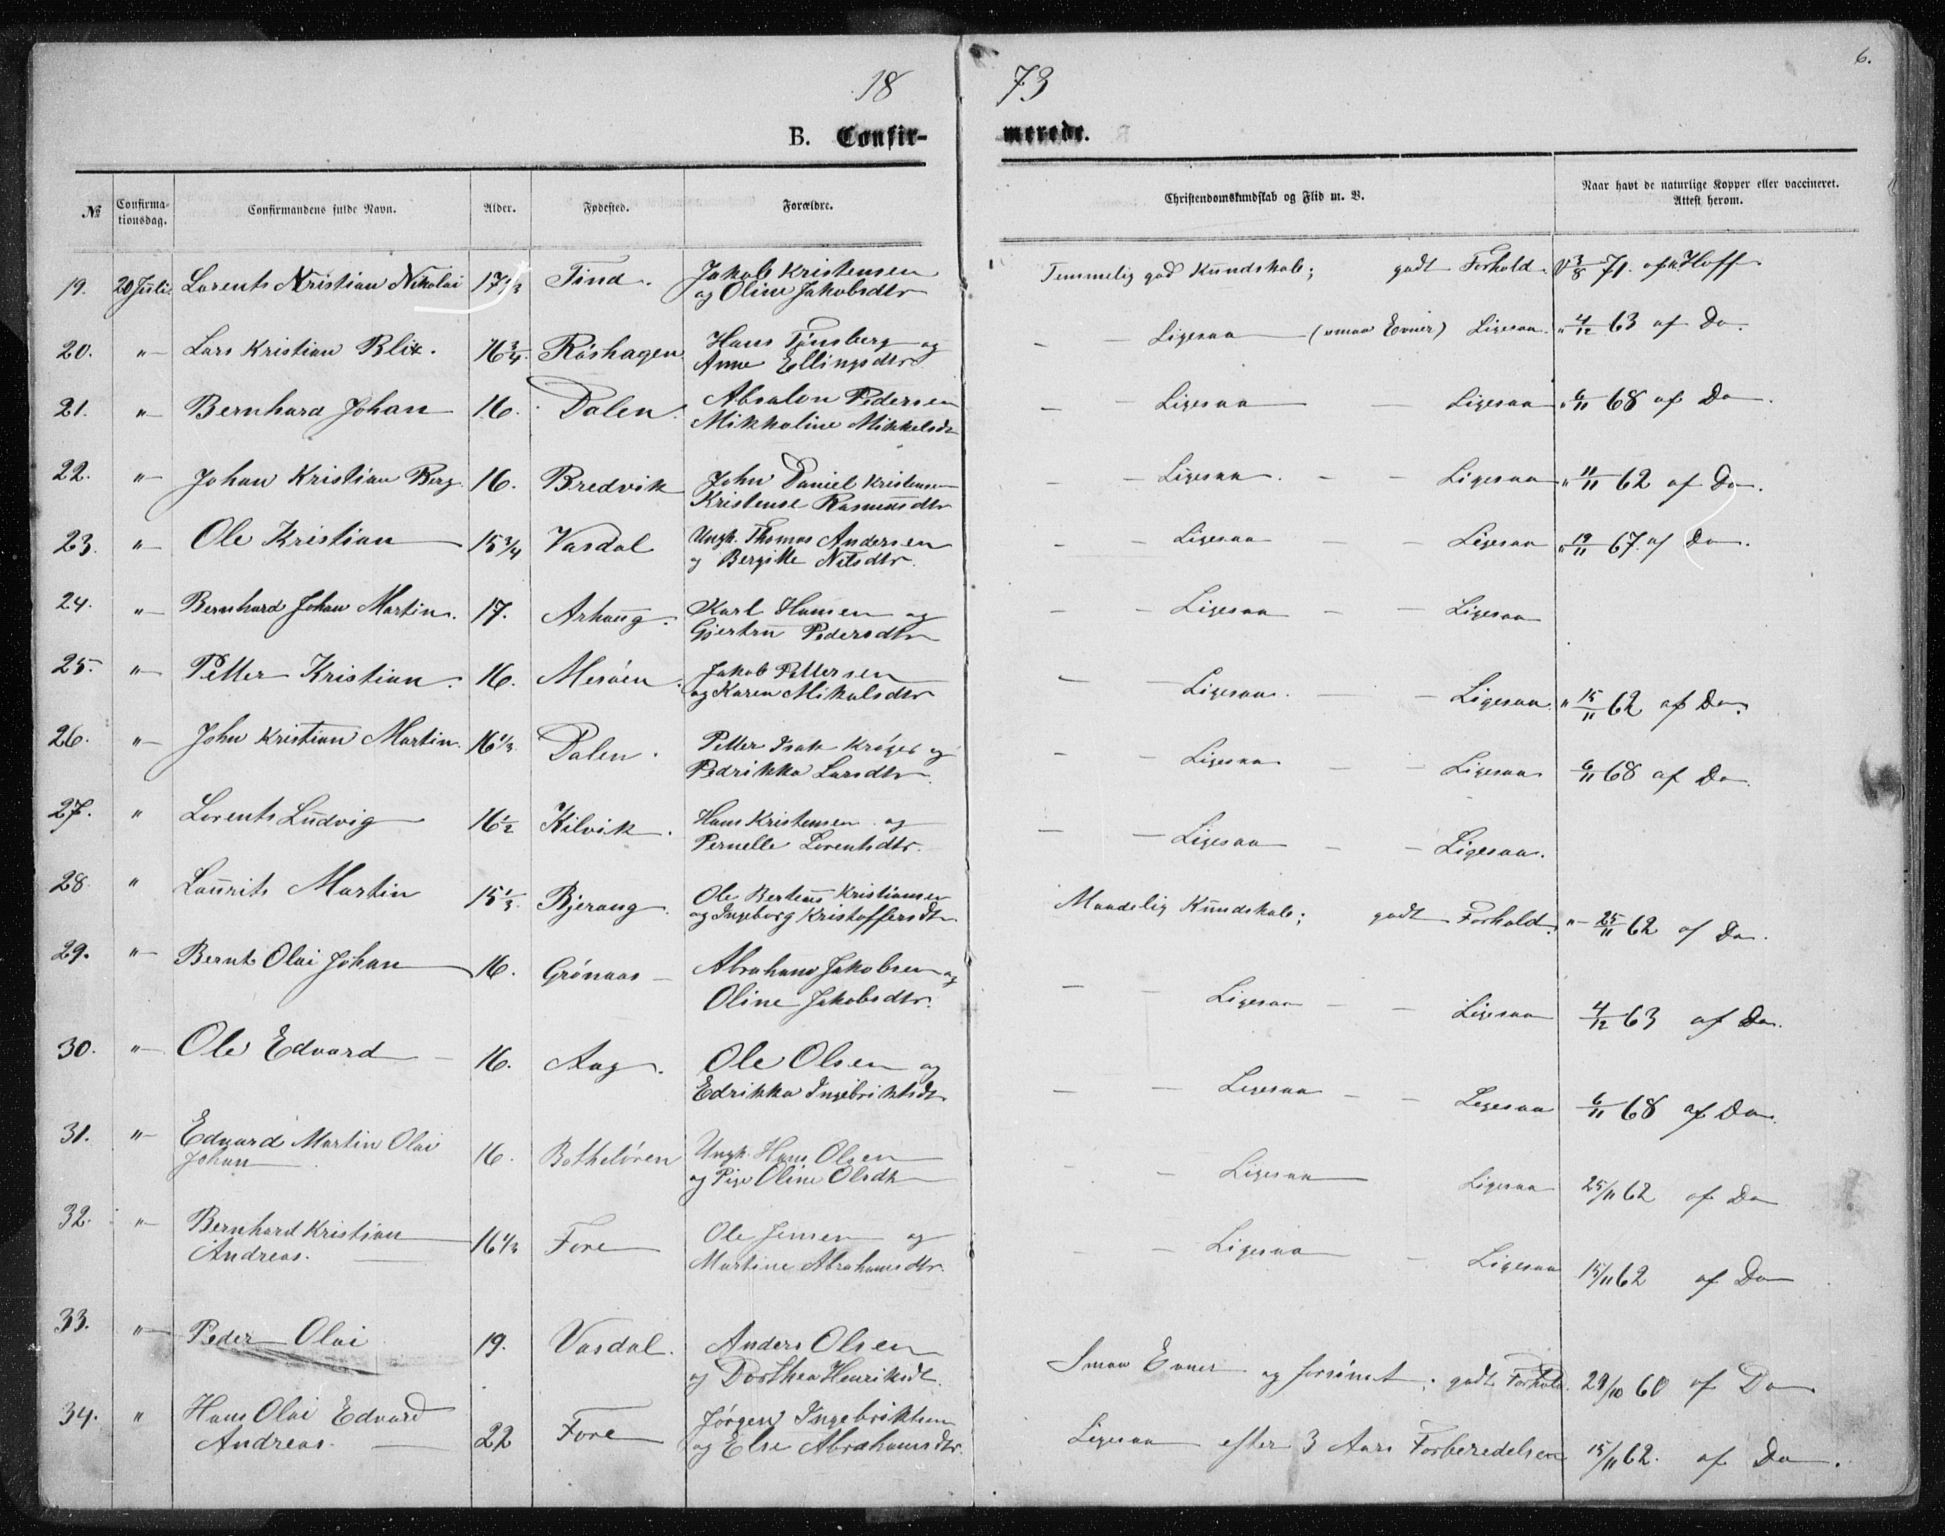 18 73
6.
B. Confirmerede.
№ Confirmationsdag. Confirmandens fulde Navn. Alder. Fødested. Forældre. Christendomskundskab og Flid m. V. Naar havt de naturlige Kopper eller vaccineret. Attest herom.
19. 20 Juli Lorents Kristian Nikolai Tind. Jakob Kristensen Temmelig god Kundskab; godt Forhold. V 3/8 71. af Hoff
og Oline Jakobsdtr
20. " Lars Kristian Blix. 16 3/4 Råshagen Hans Tønsberg og — — Ligesaa (smaa Evner) Ligesaa. " 4/12 63 af Do.
Anne Ellingsdtr
21. " Bernhard Johan 16. Dalen. Absalon Pedersen — — Ligesaa — Ligesaa " 6/11 68 af Do.
Mikkaline Mikkelsdtr
22. " Johan Kristian Berg 16. Bredvik John Daniel Kristensen — — Ligesaa. — — Ligesaa " 11/11 62 af Do.
Kristense Rasmusdtr
23. " Ole Kristian 15 3/4 Vasdal Ungk. Thomas Andersen — — Ligesaa — — Ligesaa " 19/11 67. af Do.
og Bergitte Nilsdtr.
24. " Bernhard Johan Martin. 17. Arhaug. Karl Hansen og — — Ligesaa — — Ligesaa
Gjertru Pedersdtr
25. " Petter Kristian. 16. Mesøen. Jakob Pettersen — — Ligesaa. — — Ligesaa. " 15/11 62 af Do.
og Karen Mikalsdtr
26. " John Kristian Martin. 16 1/3. Dalen. Petter Isak Krøger og — — Ligesaa — — Ligesaa 6/11 68 af Do.
Pedrikka Larsdtr.
27. " Lorents Ludvig 16 1/2 Kilvik. Hans Kristensen og — — Ligesaa — — Ligesaa.
Pernelle Lorentsdtr.
28. " Laurits Martin 15 1/3. Bjerang. Ole Berteus Kristiansen Maadelig Kundskab; godt Forhold. " 25/11 62 af Do.
og Ingeborg Kristoffersdtr
29. " Bernt Olai Johan 16. Grønaas Abraham Jakobsen og — — Ligesaa — — Ligesaa 4/12 63 af Do.
Oline Jakobsdtr.
30. " Ole Edvard 16. Aag. Ole Olsen og — — Ligesaa — — Ligesaa 6/11 68 af Do.
Edrikka Ingebriktsdtr
31. " Edvard Martin Olai 16. Ungk. Hans Olsen — — Ligesaa Ligesaa 25/11 62 af Do
Johan og Pige Oline Olsdtr
32. " Bernhard Kristian 16 1/3 Fore Ole Jensen og — — Ligesaa — Ligesaa 15/11 62 af Do
Andreas. Martine Abrahamsdtr.
33. " Peder Olai 19. Vasdal. Anders Olsen Smaa Evner og forsømt; godt Forhold. 29/10 60 af Do
og Dorthea Henriksdt.
34. " Hans Olai Edvard 22 Fore Jørgen Ingebriktsen Ligesaa efter 3 Aars Forberedelse 15/11 62. af Do.
Andreas. og Else Abrahamsdtr.